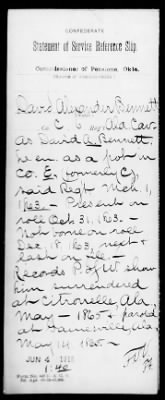 CONFEDERATE
Statement of Service Reference Slip.
Commissioner of Pensions, Okla.
David Alexander Bennett
Co C 6 Regt Ala Cav.
as David A. Bennett,
he en. as a pvt in
Co. E, formerly C,
said Regt Mch. 1,
1863. - Present on
roll Oct 31, 1863. -
Not borne on roll
Dec. 18, 1863, next &
last on file. -
Records P of W show
him surrendered
at Citronelle, Ala,
May - 1865 & paroled
at Gainesville, Ala,
May 14, 1865 -
JUN 4 1915